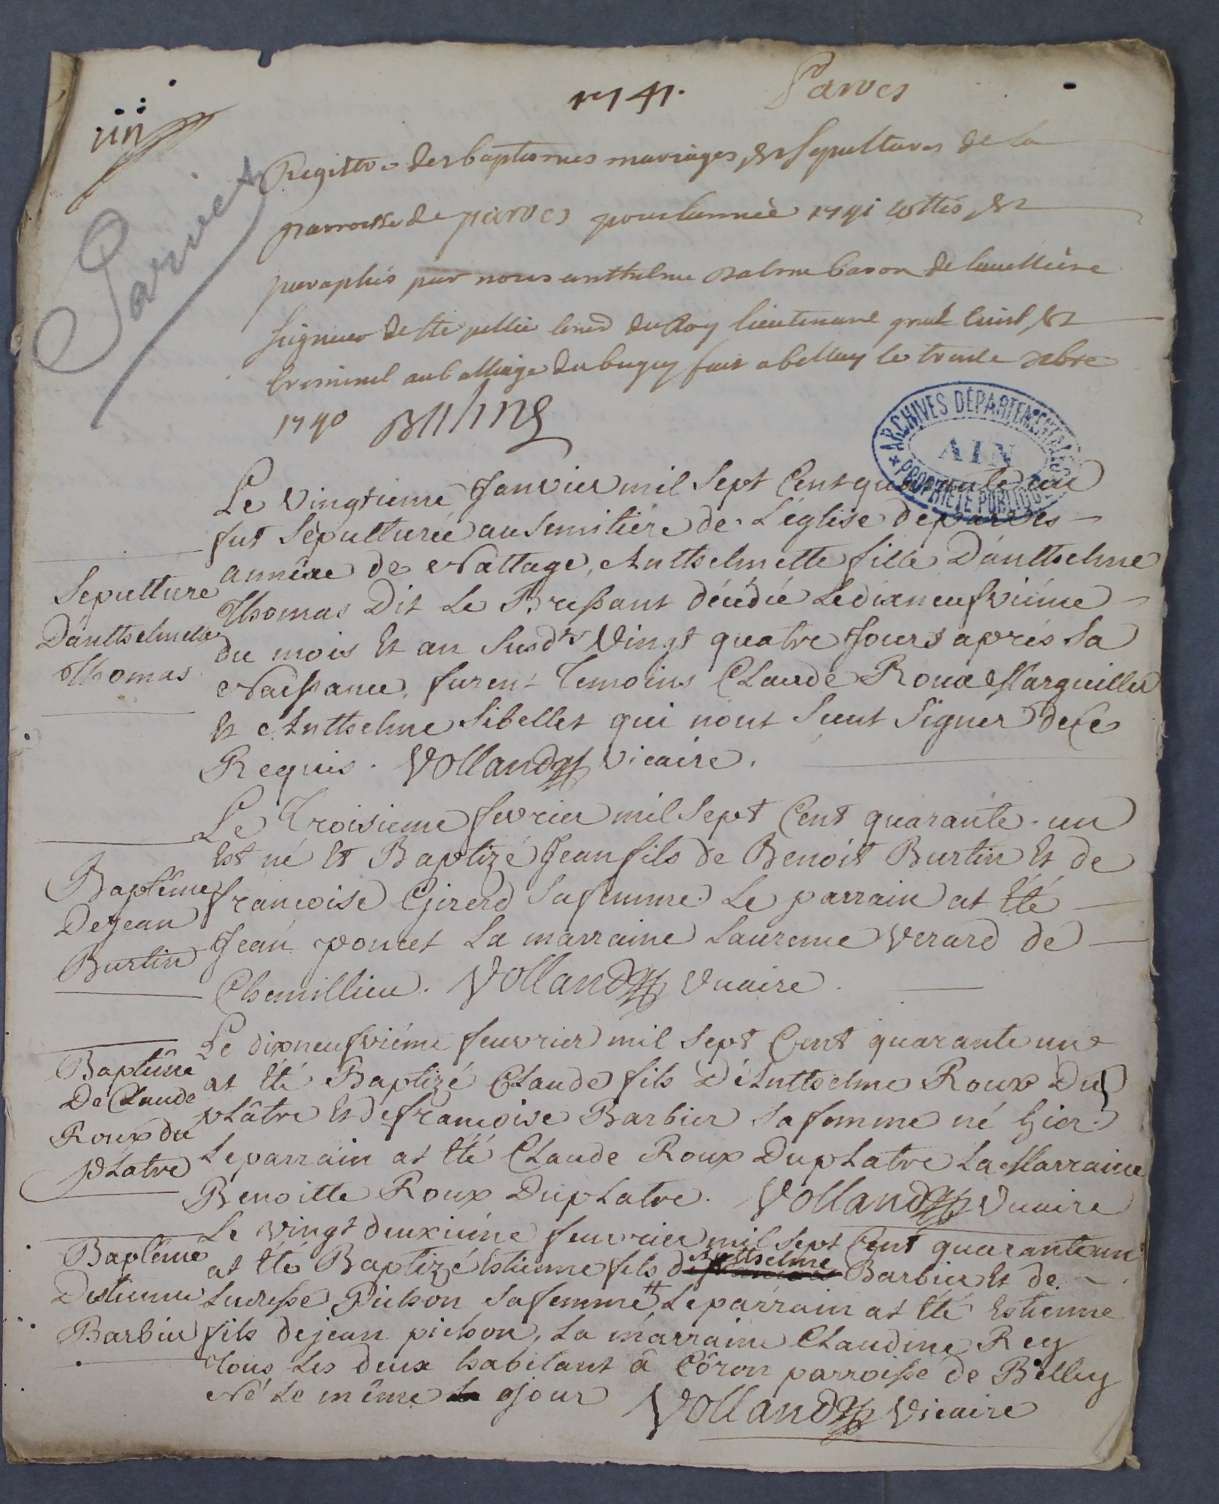 1741. Parves
iiij
Parves
Registre des baptemes mariages, et sepultures de la
parroisse de parves pour l'année 1741 cottés, et
paraphés par nous anthelme balme baron de
Seigneur de Ste du Roy lieutenant gnal Civil, et
Criminel au balliage du bugey fait a bellay le trente Xbre
1740 Balme
ARCHIVES DÉPARTEMENTALES
AIN
PROPRIÉTÉ PUBLIQUE
Sepulture
D'anthelmette
Thomas
Le Vingtieme Janvier mil Sept Cent quarante un
fut Sépulturée au Semitiére de L'église de parves
annéxe de Nattage, Anthelmette fille D'anthelme
Thomas Dit Le Bressant décédée Le dixneufviéme
du mois Et an Susdts Vingt quatre Jours aprés Sa
Naissance, furent Temoins Claude Roux Marguillier
Et Anthelme Sibellet qui n'ont Sceut Signer de Ce
Requis. Vollandy Vicaire.
Baptême
De Jean
Burtin
Le Troisieme fevrier mil Sept Cent quarante-un
Est né Et Baptizé Jean fils de Benoit Burtin Et de
francoise Girerd Sa femme. Le parrain at Eté
Jean poncet La marraine Laurence Verard de
Chemillieu. Vollandy Vicaire.
Baptême
De Claude
Roux du
plâtre
Le dixneufviéme feuvrier mil Sept Cent quarante un
at Eté Baptizé Claude fils D'Anthelme Roux Du
plâtre Et de francoise Barbier Sa femme né hier.
Le parrain at Eté Claude Roux Duplatre La Marraine
Benoitte Roux Duplatre. Vollandy Vicaire
Baptême
D'estienne
Barbier
Le Vingt deuxiéme feuvrier mil Sept Cent quarante un
at Eté Baptizé Estienne fils d'anthelme Barbier Et de
Lucresse Pichon Sa femme Le parrain at Eté Estienne
fils de jean pichon, La marraine Claudine Rey
Tous Les deux habitant â Côron parroisse de Belley
Né Le même Jour Vollandy Vicaire